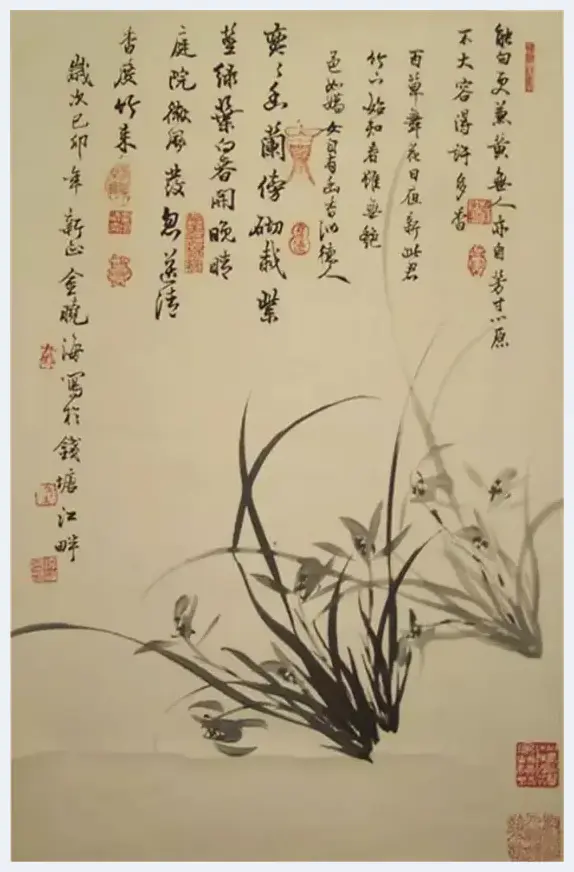 能白更兼黃無人亦自芳寸心原
不大容得許多香
百草花日夜新此君
竹下始知春雖無艷
色如嬌女自有幽香似德人
奕々幽蘭傍砌栽紫
莖綠葉向春開晚晴
庭院微風發忽送清
香度竹來
歲次己卯年新正金曉海寫於錢塘江畔